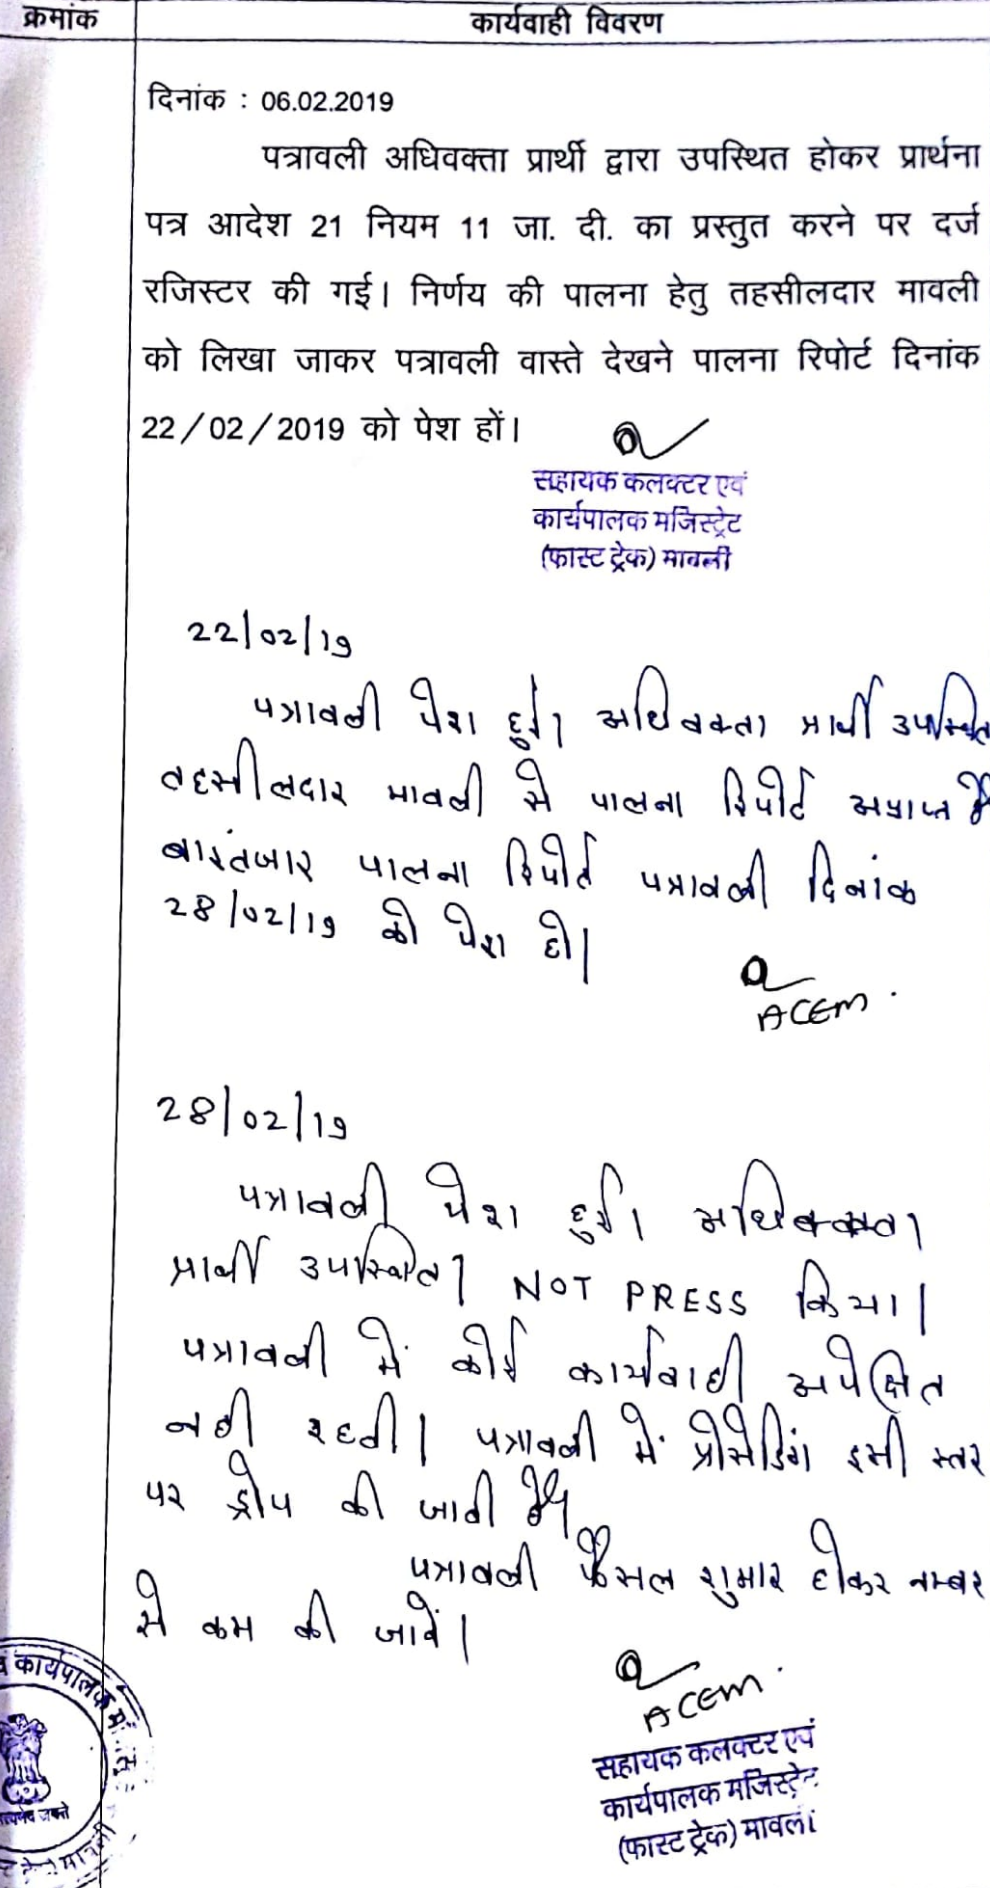 क्रमांक
कार्यवाही विवरण
दिनांक : 06.02.2019
पत्रावली अधिवक्ता प्रार्थी द्वारा उपस्थित होकर प्रार्थना
पत्र आदेश 21 नियम 11 जा. दी. का प्रस्तुत करने पर दर्ज
रजिस्टर की गई। निर्णय की पालना हेतु तहसीलदार मावली
को लिखा जाकर पत्रावली वास्ते देखने पालना रिपोर्ट दिनांक
22/02/2019 को पेश हों।
सहायक कलक्टर एवं
कार्यपालक मजिस्ट्रेट
(फास्ट ट्रेक) मावली
22/02/19
पत्रावली पेश हुई। अधिवक्ता प्रार्थी उपस्थित
तहसीलदार मावली से पालना रिपोर्ट अप्राप्त है
बाइंतजार पालना रिपोर्ट पत्रावली दिनांक
28/02/19 को पेश हो।
ACEM.
28/02/19
पत्रावली पेश हुई। अधिवक्ता
प्रार्थी उपस्थित। NOT PRESS किया।
पत्रावली में कोई कार्यवाही अपेक्षित
नही रहती। पत्रावली में प्रोसेडिंग इसी स्तर
पर ड्रोप की जाती है।
पत्रावली फैसल शुमार होकर नम्बर
से कम की जावें।
ACEM.
सहायक कलक्टर एवं
कार्यपालक मजिस्ट्रेट
(फास्ट ट्रेक) मावली
कार्यपालक